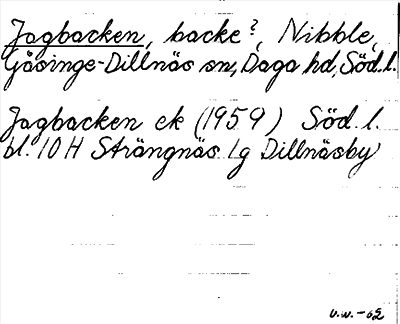 Jagbacken, backe?, Nibble,
Gåsinge-Dillnäs sn, Daga hd, Söd.l.
Jagbacken ek (1959) Söd. l.
bl. 10 H Strängnäs 1g Dillnäsby
U.W. -62